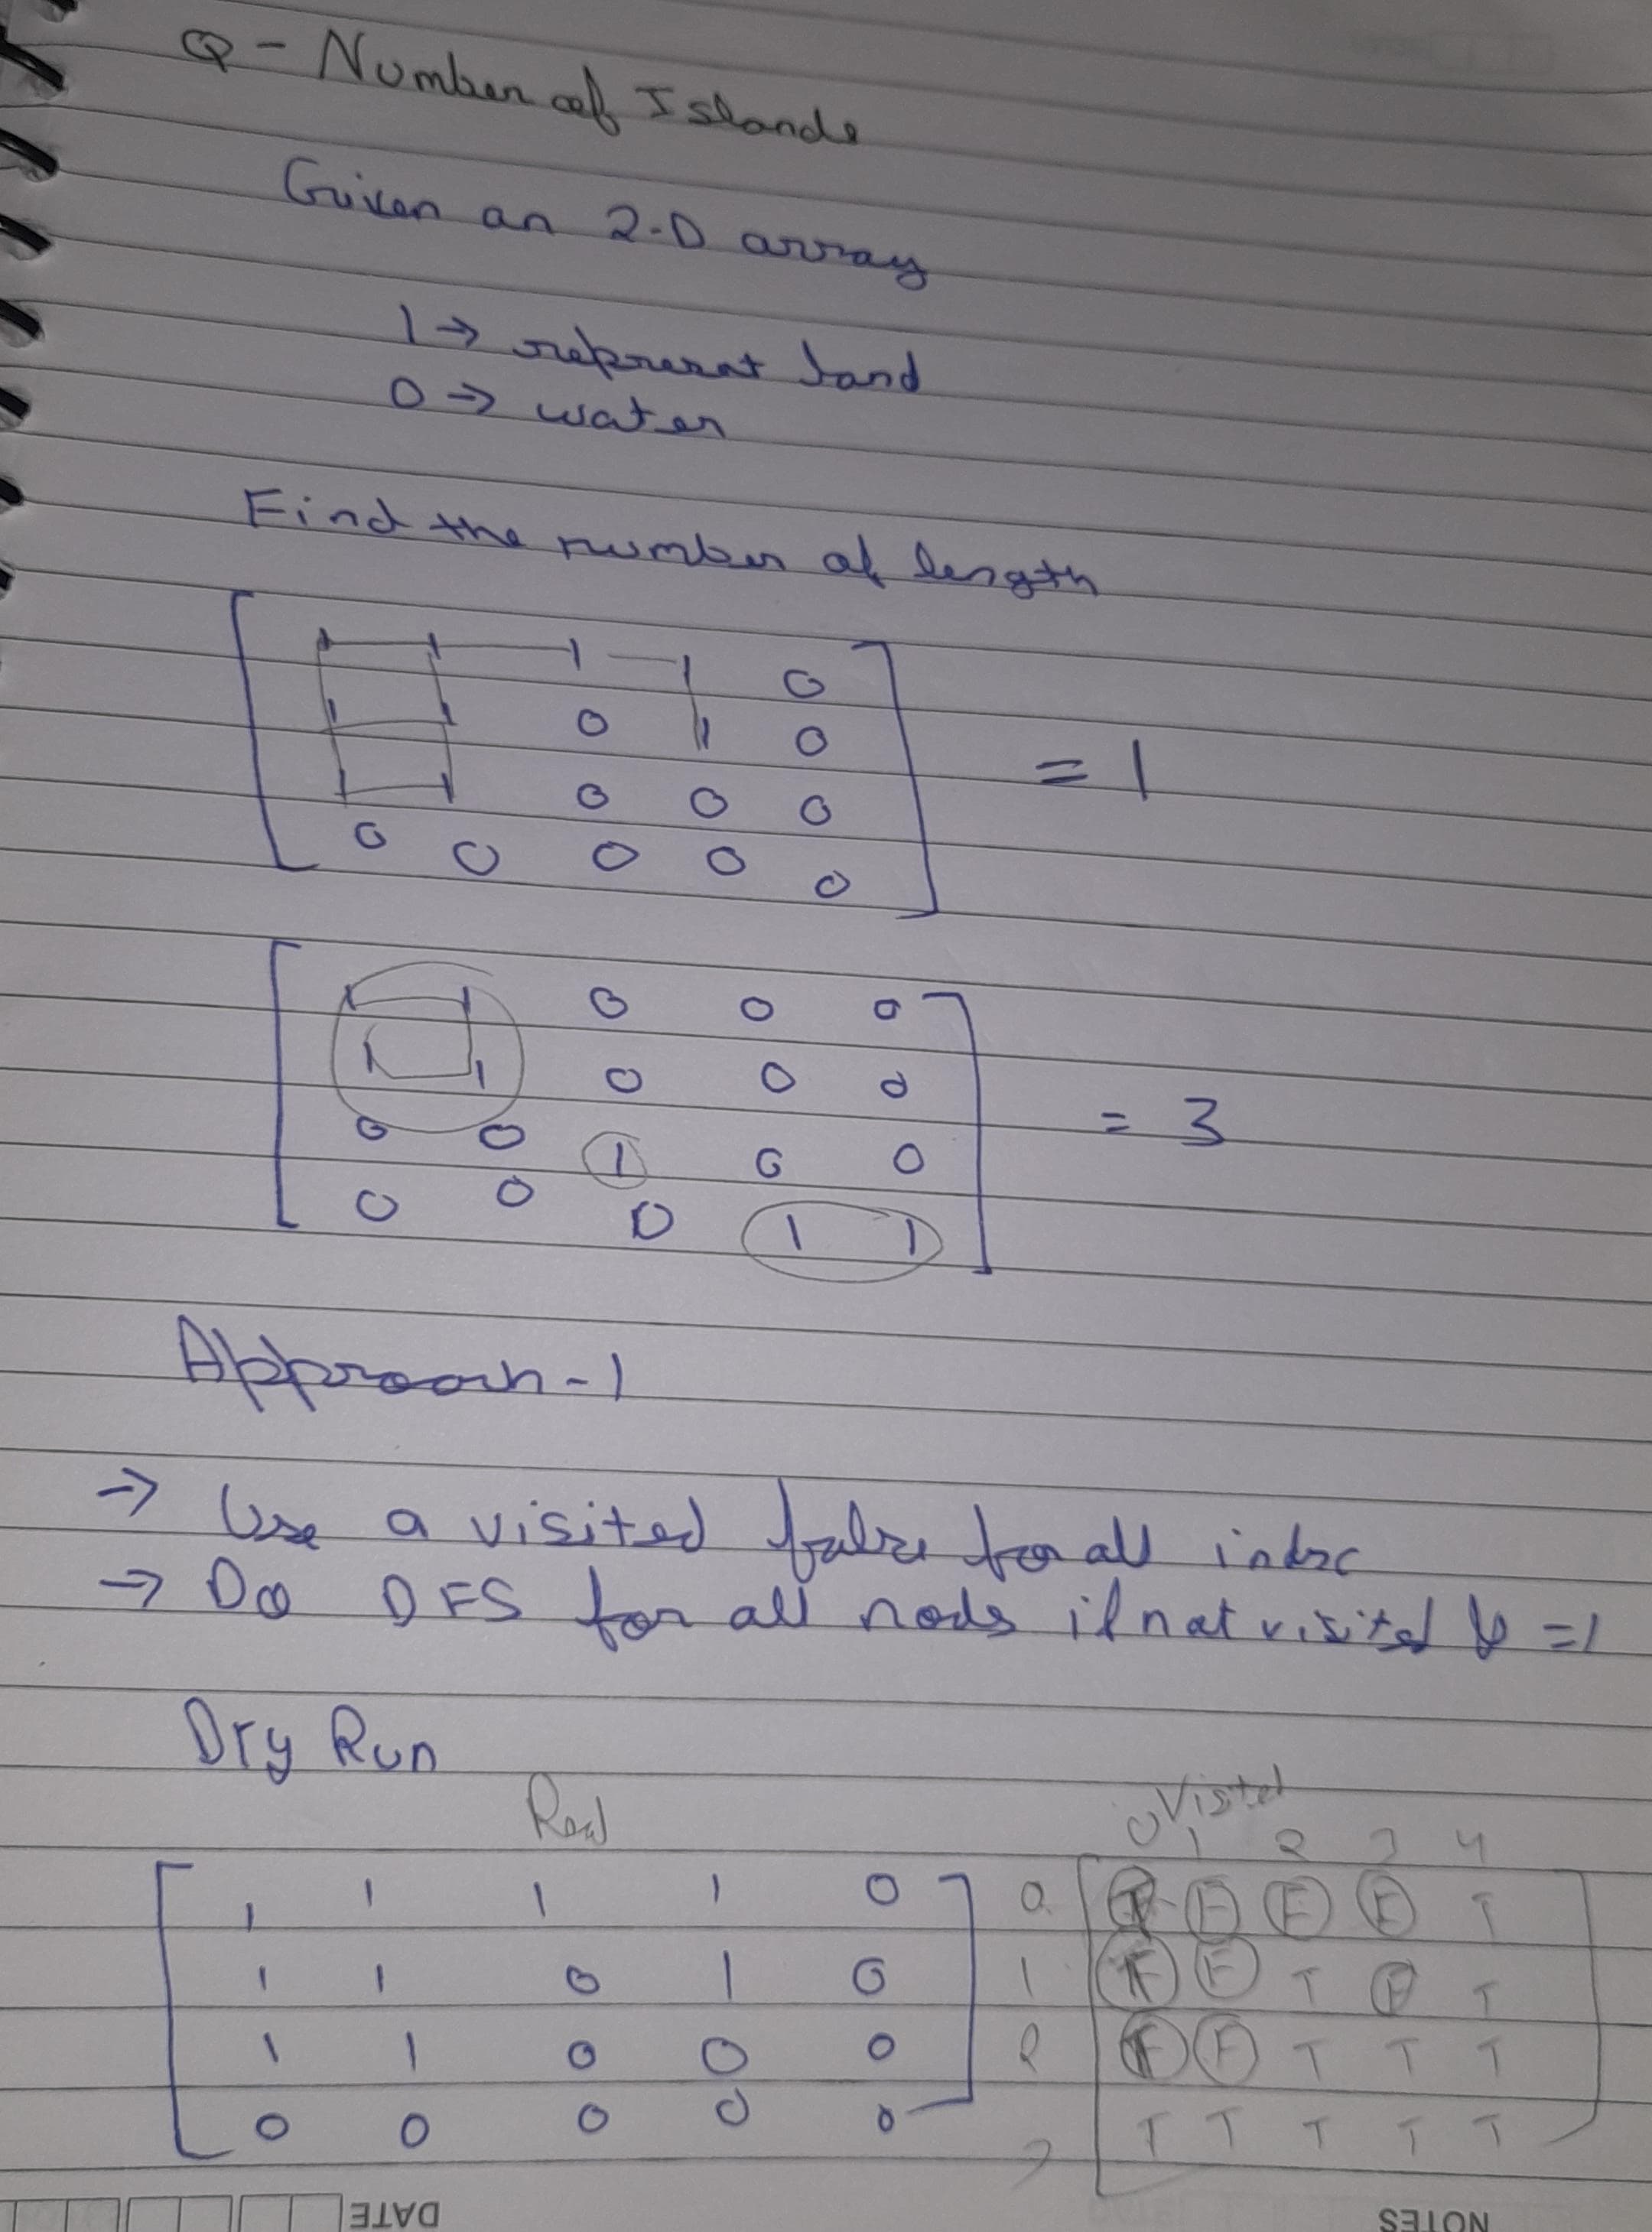 Q - Number of Islands
Given an 2-D array
1 → represent land
0 → water
Find the number of length
1 1 1 1 0
1 1 0 1 0
1 1 0 0 0
0 0 0 0 0
= 1
1 1 0 0 0
1 1 0 0 0
0 0 1 0 0
0 0 0 1 1
= 3
Approach-1
→ Use a visited false for all
→ Do DFS for all nods if not visited & =1
Dry Run
Real
1 1 1 1 0
1 1 0 1 0
1 1 0 0 0
0 0 0 0 0
Visted
0 1 2 3 4
0 F F F T
1 F F T F T
2 F F T T T
T T T T T
DATE
NOTES